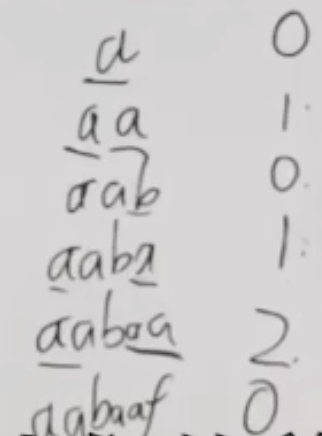 a 0
aa 1
aab 0
aaba 1
aabaa 2
aabaaf 0